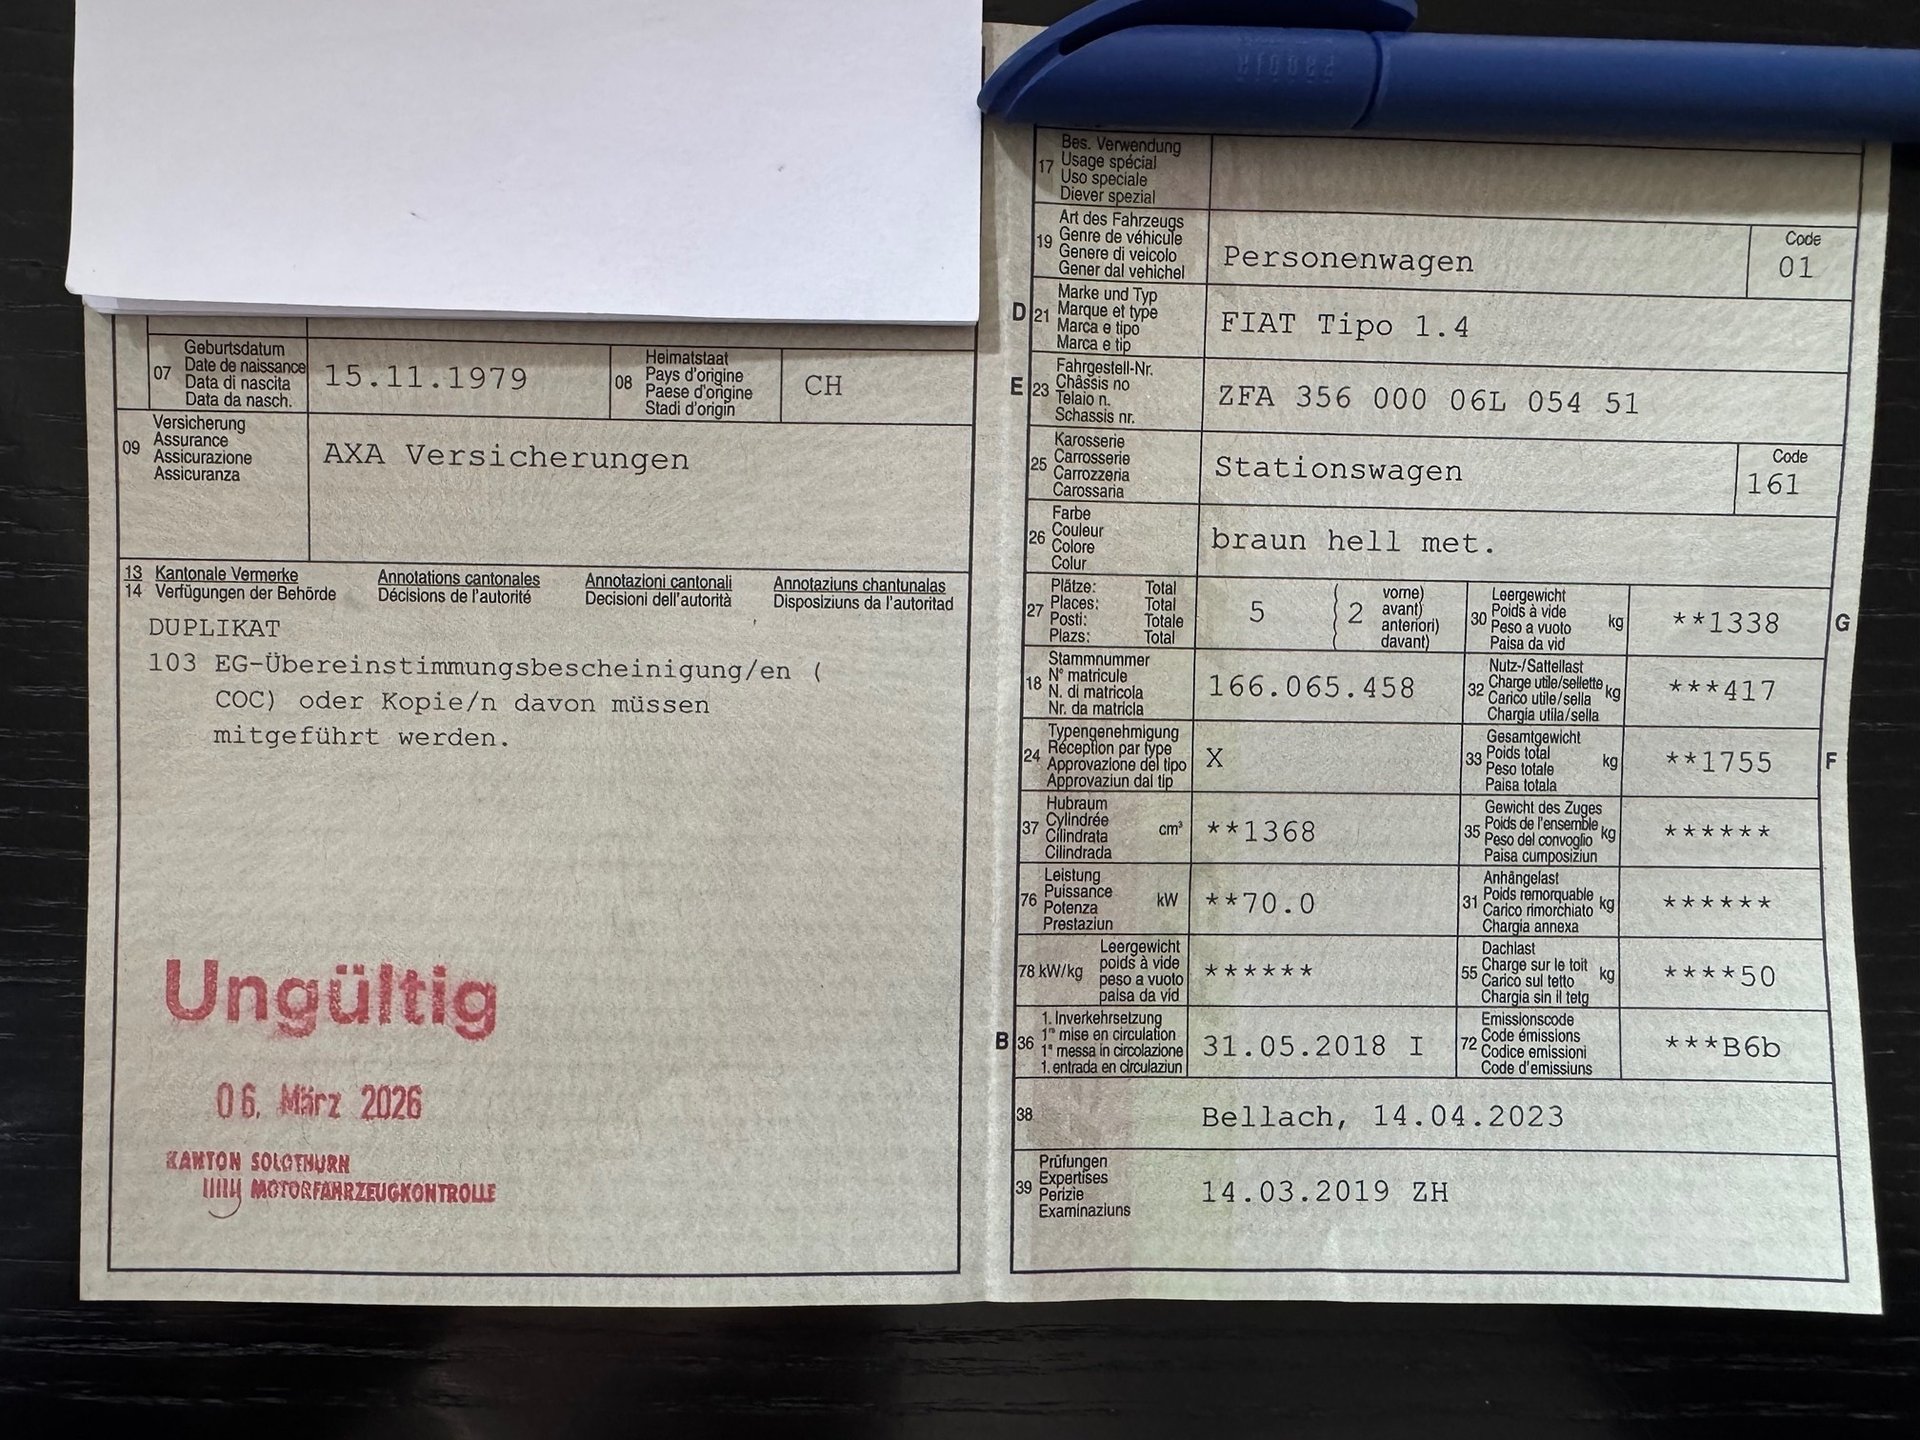 07 Geburtsdatum
Date de naissance
Data di nascita
Data da nasch.
15.11.1979
08 Heimatstaat
Pays d'origine
Paese d'origine
Stadi d'origin
CH
09 Versicherung
Assurance
Assicurazione
Assicuranza
AXA Versicherungen
13 Kantonale Vermerke Annotations cantonales Annotazioni cantonali Annotaziuns chantunalas
14 Verfügungen der Behörde Décisions de l'autorité Decisioni dell'autorità Disposiziuns da l'autoritad
DUPLIKAT
103 EG-Übereinstimmungsbescheinigung/en (
COC) oder Kopie/n davon müssen
mitgeführt werden.
Ungültig
06. März 2026
KANTON SOLOTHURN
MOTORFAHRZEUGKONTROLLE
17 Bes. Verwendung
Usage spécial
Uso speciale
Diever spezial
19 Art des Fahrzeugs
Genre de véhicule
Genere di veicolo
Gener dal vehichel
Personenwagen
Code
01
D 21 Marke und Typ
Marque et type
Marca e tipo
Marca e tip
FIAT Tipo 1.4
E 23 Fahrgestell-Nr.
Châssis no
Telaio n.
Schassis nr.
ZFA 356 000 06L 054 51
25 Karosserie
Carrosserie
Carrozzeria
Carossaria
Stationswagen
Code
161
26 Farbe
Couleur
Colore
Colur
braun hell met.
27 Plätze: Total
Places: Total
Posti: Totale
Plazs: Total
5 ( 2 vorne)
( avant)
( anteriori)
( davant)
30 Leergewicht
Poids à vide
Peso a vuoto
Paisa da vid
kg
**1338
G
18 Stammnummer
N° matricule
N. di matricola
Nr. da matricla
166.065.458
32 Nutz-/Sattellast
Charge utile/sellette
Carico utile/sella
Chargia utila/sella
kg
***417
24 Typengenehmigung
Réception par type
Approvazione del tipo
Approvaziun dal tip
X
33 Gesamtgewicht
Poids total
Peso totale
Paisa totala
kg
**1755
F
37 Hubraum
Cylindrée
Cilindrata
Cilindrada
cm³
**1368
35 Gewicht des Zuges
Poids de l'ensemble
Peso del convoglio
Paisa cumposiziun
kg
******
76 Leistung
Puissance
Potenza
Prestaziun
kW
**70.0
31 Anhängelast
Poids remorquable
Carico rimorchiato
Chargia annexa
kg
******
78 kW/kg Leergewicht
poids à vide
peso a vuoto
paisa da vid
******
55 Dachlast
Charge sur le toit
Carico sul tetto
Chargia sin il tetg
kg
****50
B 36 1. Inverkehrsetzung
1re mise en circulation
1a messa in circolazione
1. entrada en circulaziun
31.05.2018 I
72 Emissionscode
Code émissions
Codice emissioni
Code d'emissiuns
***B6b
38 Bellach, 14.04.2023
39 Prüfungen
Expertises
Perizie
Examinaziuns
14.03.2019 ZH